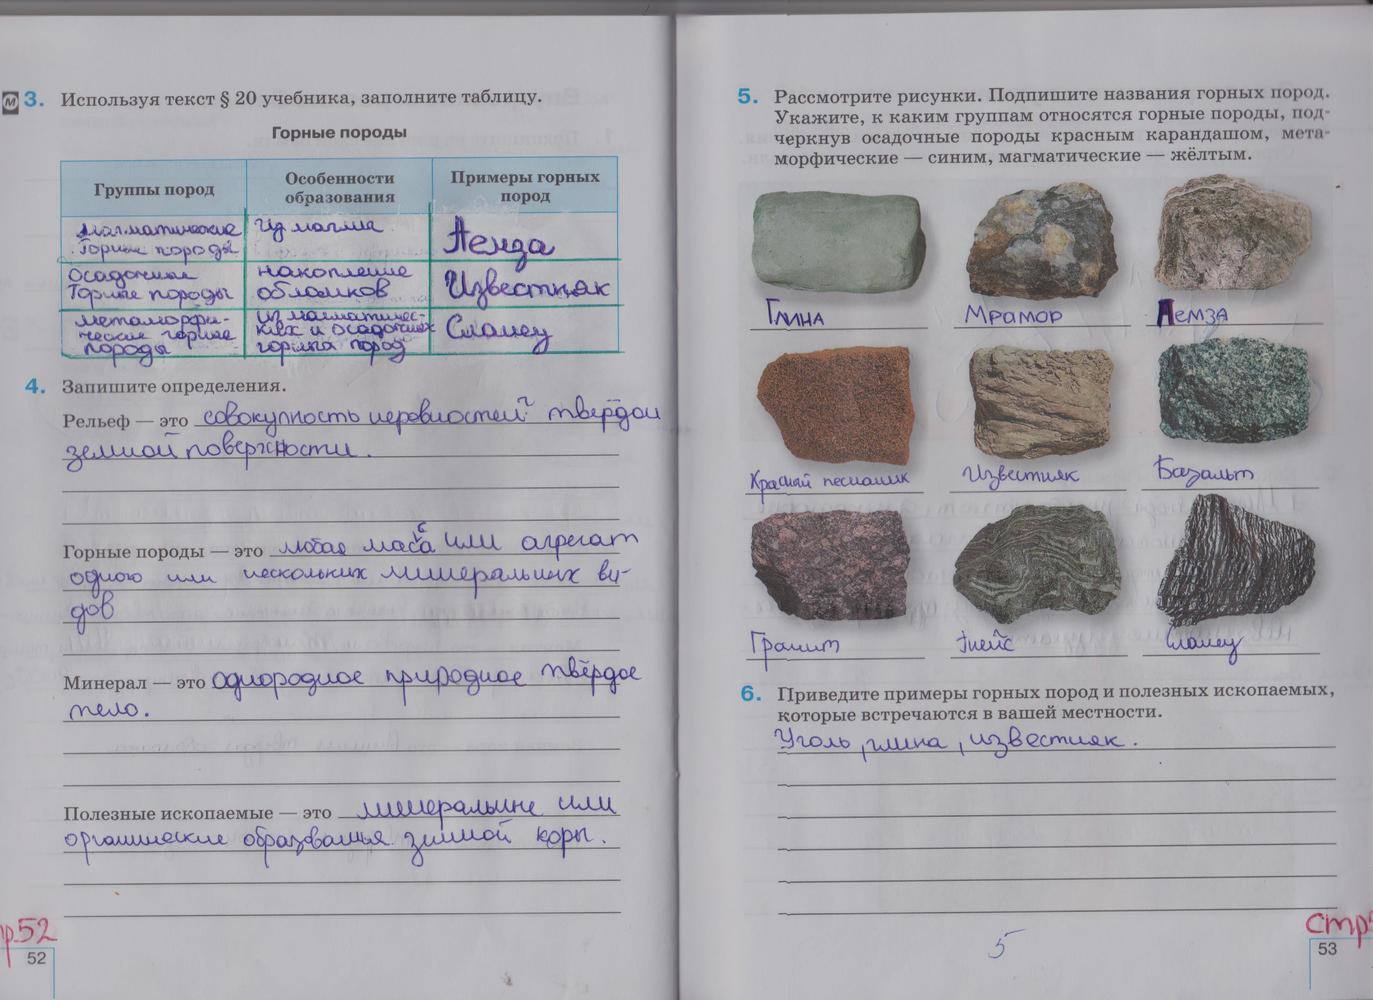 м 3. Используя текст § 20 учебника, заполните таблицу.
Горные породы
Группы пород
Особенности
образования
Примеры горных
пород
магматические
Горные породы
Из магмы
Пемза
Осадочные
Горные породы
накопление
обломков
Известняк
метаморфи-
ческие горные
породы
из магматичес-
ких и осадочных
горных пород
Сланец
4. Запишите определения.
Рельеф — это совокупность неровностей твёрдой
земной поверхности.
Горные породы — это любая масса или агрегат
одного или нескольких минеральных ви-
дов
Минерал — это однородное природное твёрдое
тело.
Полезные ископаемые — это минеральные или
органические образованья зимной коры.
р.52
52
5. Рассмотрите рисунки. Подпишите названия горных пород.
Укажите, к каким группам относятся горные породы, под-
черкнув осадочные породы красным карандашом, мета-
морфические — синим, магматические — жёлтым.
Глина
Мрамор
Пемза
Красный песчаник
Известняк
Базальт
Гранит
Гнейс
Сланец
6. Приведите примеры горных пород и полезных ископаемых,
которые встречаются в вашей местности.
Уголь, глина, известняк.
5
Стр5
53